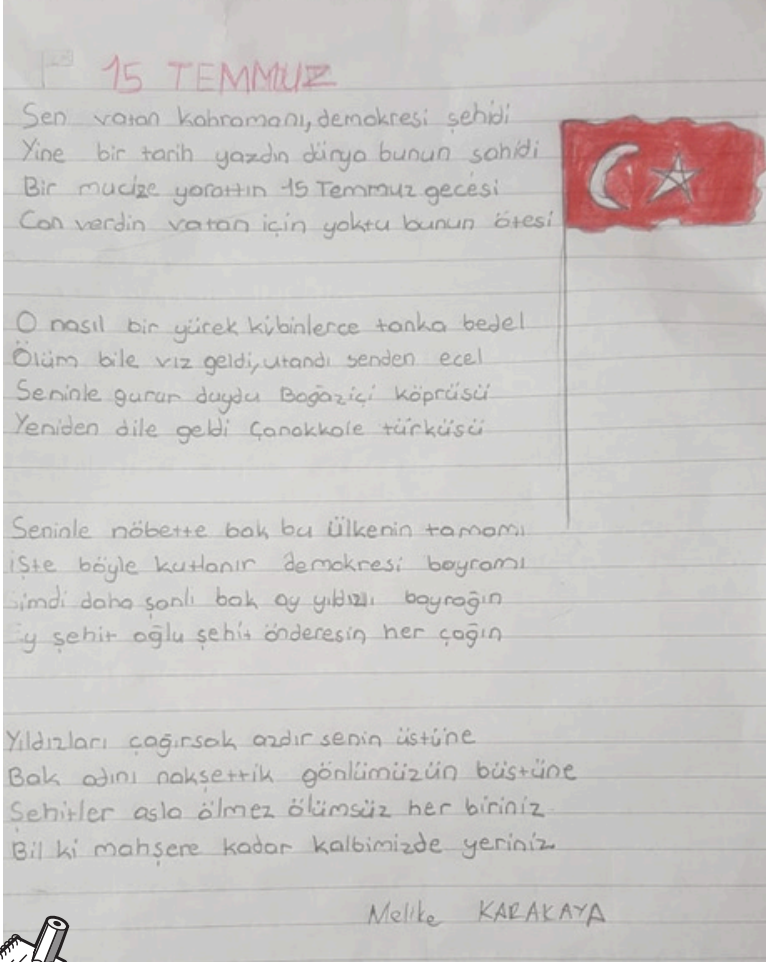 15 TEMMUZ
Sen vatan kahramanı, demokresi şehidi
Yine bir tarih yazdın dünya bunun şahidi
Bir mucize yarattın 15 Temmuz gecesi
Can verdin vatan için yoktu bunun ötesi
O nasıl bir yürek kibinlerce tanka bedel
Ölüm bile vız geldi, utandı senden ecel
Seninle gurur duydu Boğaziçi köprüsü
Yeniden dile geldi Çanakkale türküsü
Seninle nöbette bak bu ülkenin tamamı
işte böyle kutlanır demokresi bayramı
Şimdi daha şanlı bak ay yıldızlı bayrağın
Ey şehit oğlu şehit önderesin her çağın
Yıldızları çağırsak azdır senin üstüne
Bak adını nakşettik gönlümüzün büstüne
Şehitler asla ölmez ölümsüz her biriniz
Bil ki mahşere kadar kalbimizde yeriniz
Melike KARAKAYA